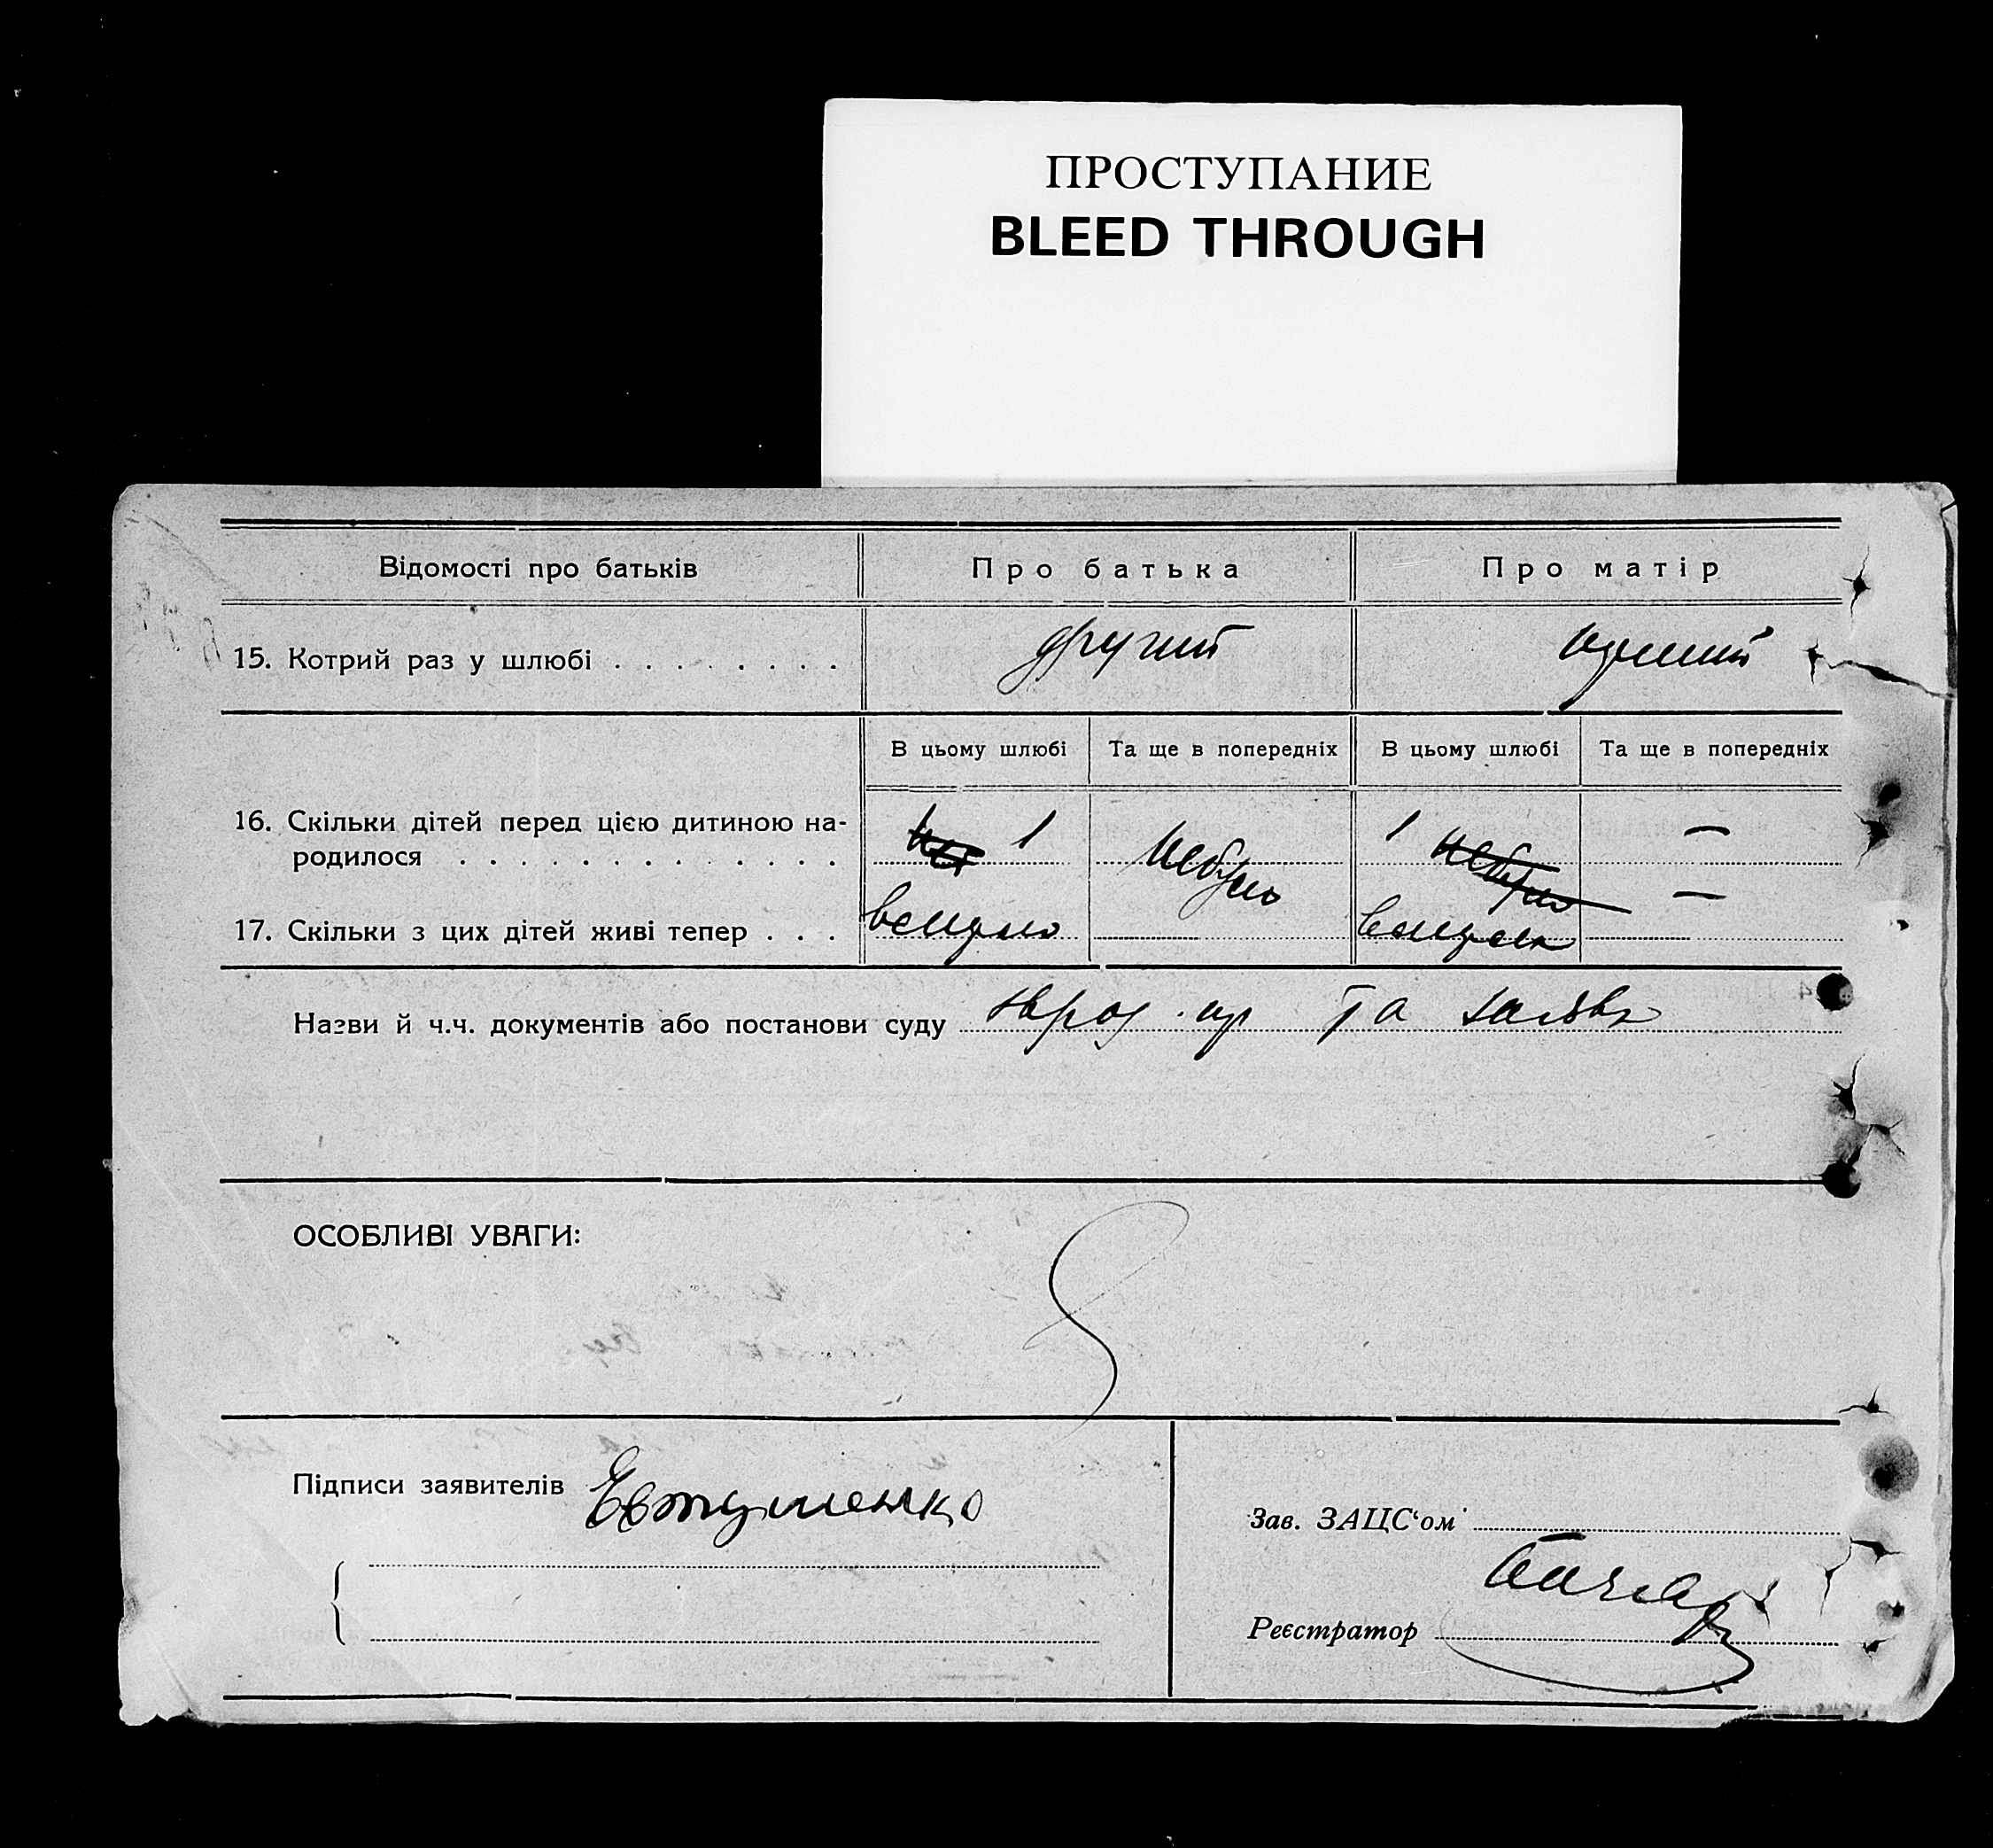 ПРОСТУПАНИЕ
BLEED THROUGH
Відомості про батьків Про батька Про матір
15. Котрий раз у шлюбі . . . . . . . . другий
В цьому шлюбі Та ще в попередніх В цьому шлюбі Та ще в попередніх
16. Скільки дітей перед цією дитиною на-
родилося . . . . . . . . . . . . . 1 небуло 1 небуло —
17. Скільки з цих дітей живі тепер . . . —
Назви й ч.ч. документів або постанови суду та
ОСОБЛИВІ УВАГИ:
Підписи заявителів Евтушенко
Зав. ЗАЦС‘ом
Реєстратор